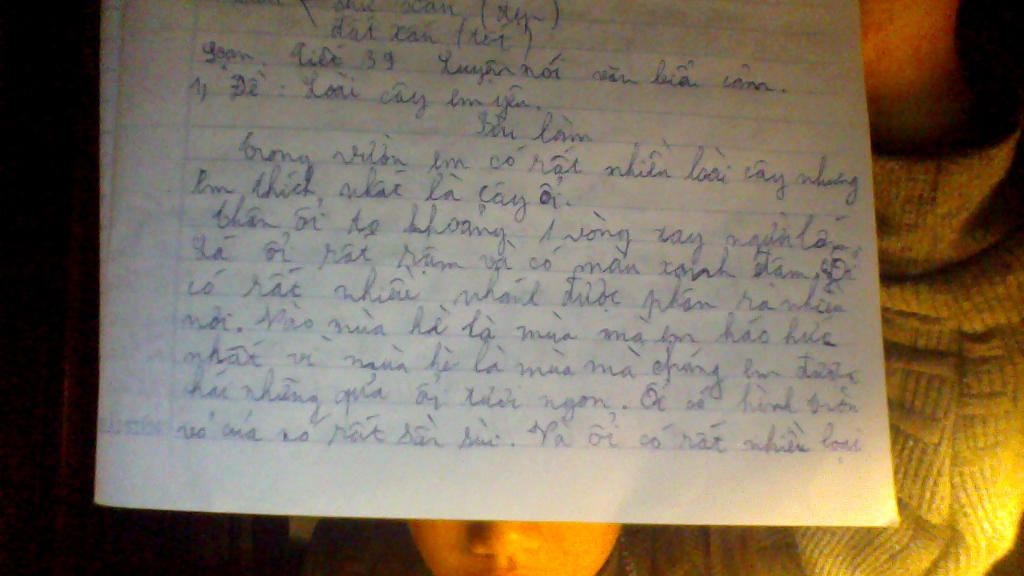 xấu (tốt)
Soạn. Tiết 39 Luyện nói văn biểu cảm.
1, Đề: Loài cây em yêu.
Bài làm
Trong vườn em có rất nhiều loài cây nhưng
em thích nhất là cây ổi.
Thân ổi to khoảng 1 vòng tay người lớn.
Lá ổi rất rậm và có màu xanh đậm. Ổi
có rất nhiều nhánh được phân ra nhiều
nơi. Vào mùa hè là mùa mà em háo hức
nhất vì mùa hè là mùa mà chúng em được
hái những quả ổi tươi ngon. Ổi có hình tròn
vỏ của nó rất sần sùi. Và ổi có rất nhiều loại